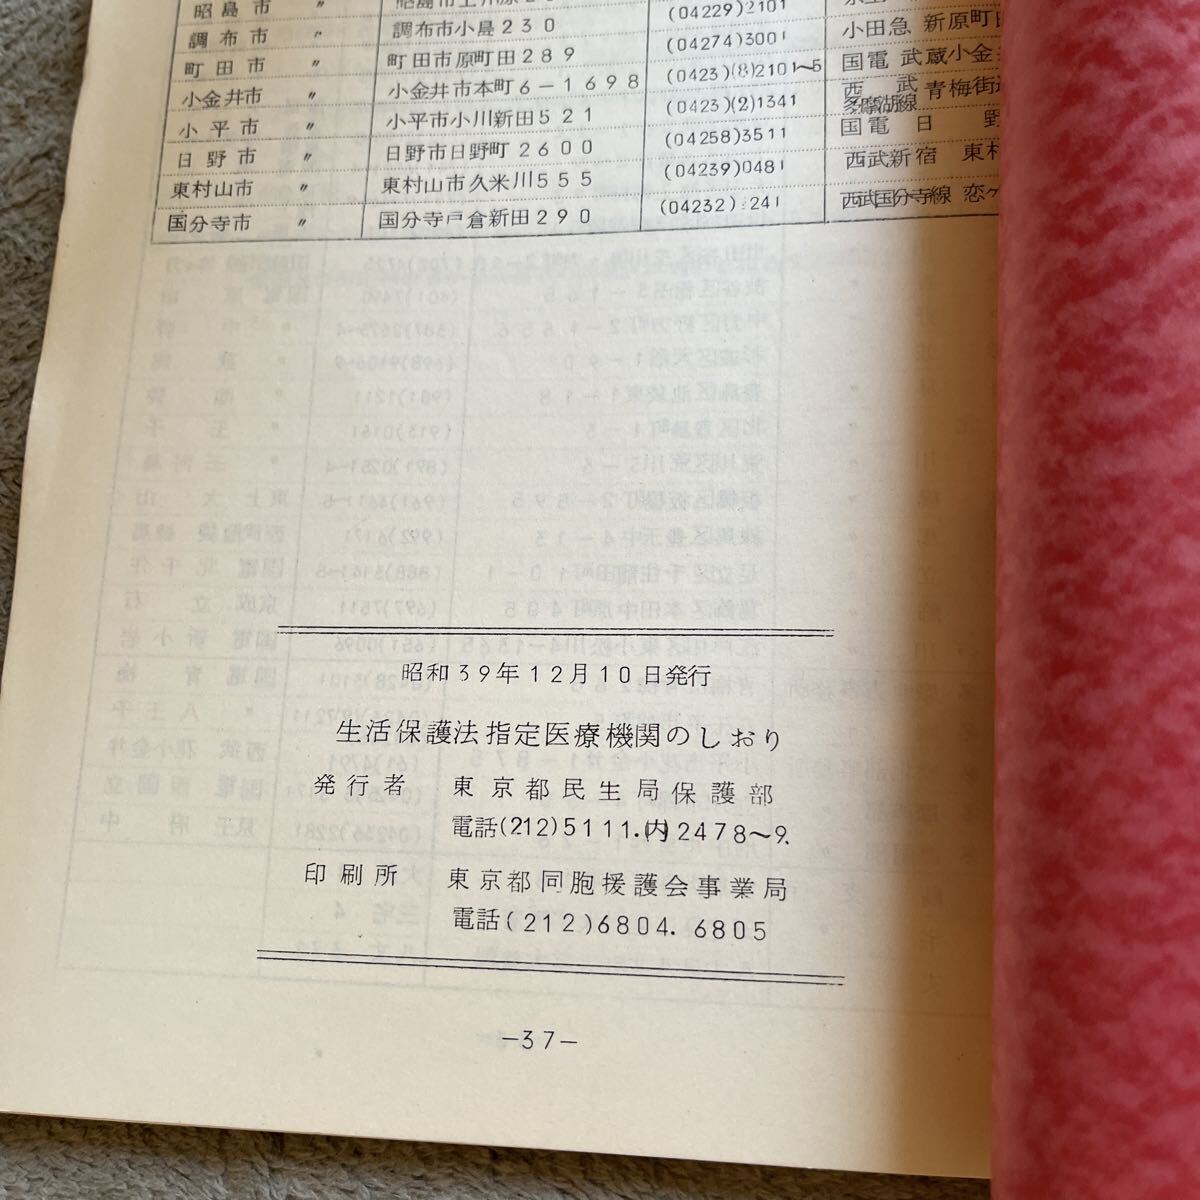 昭島市 〃
調布市 〃 調布市小島230 (04229)2101 小田急 新原町田
町田市 〃 町田市原町田289 (04274)3001 国電 武蔵小金井
小金井市 〃 小金井市本町6-1698 (0423)(8)2101~5 西武多摩湖線 青梅街道
小平市 〃 小平市小川新田521 (0423)(2)1341 国電 日野
日野市 〃 日野市日野町2600 (04258)3511 西武新宿 東村
東村山市 〃 東村山市久米川555 (04239)0481 西武国分寺線 恋ヶ
国分寺市 〃 国分寺戸倉新田290 (04232) 241
昭和39年12月10日発行
生活保護法指定医療機関のしおり
発行者 東京都民生局保護部
電話(212)5111.(内)2478~9.
印刷所 東京都同胞援護会事業局
電話(212)6804. 6805
-37-